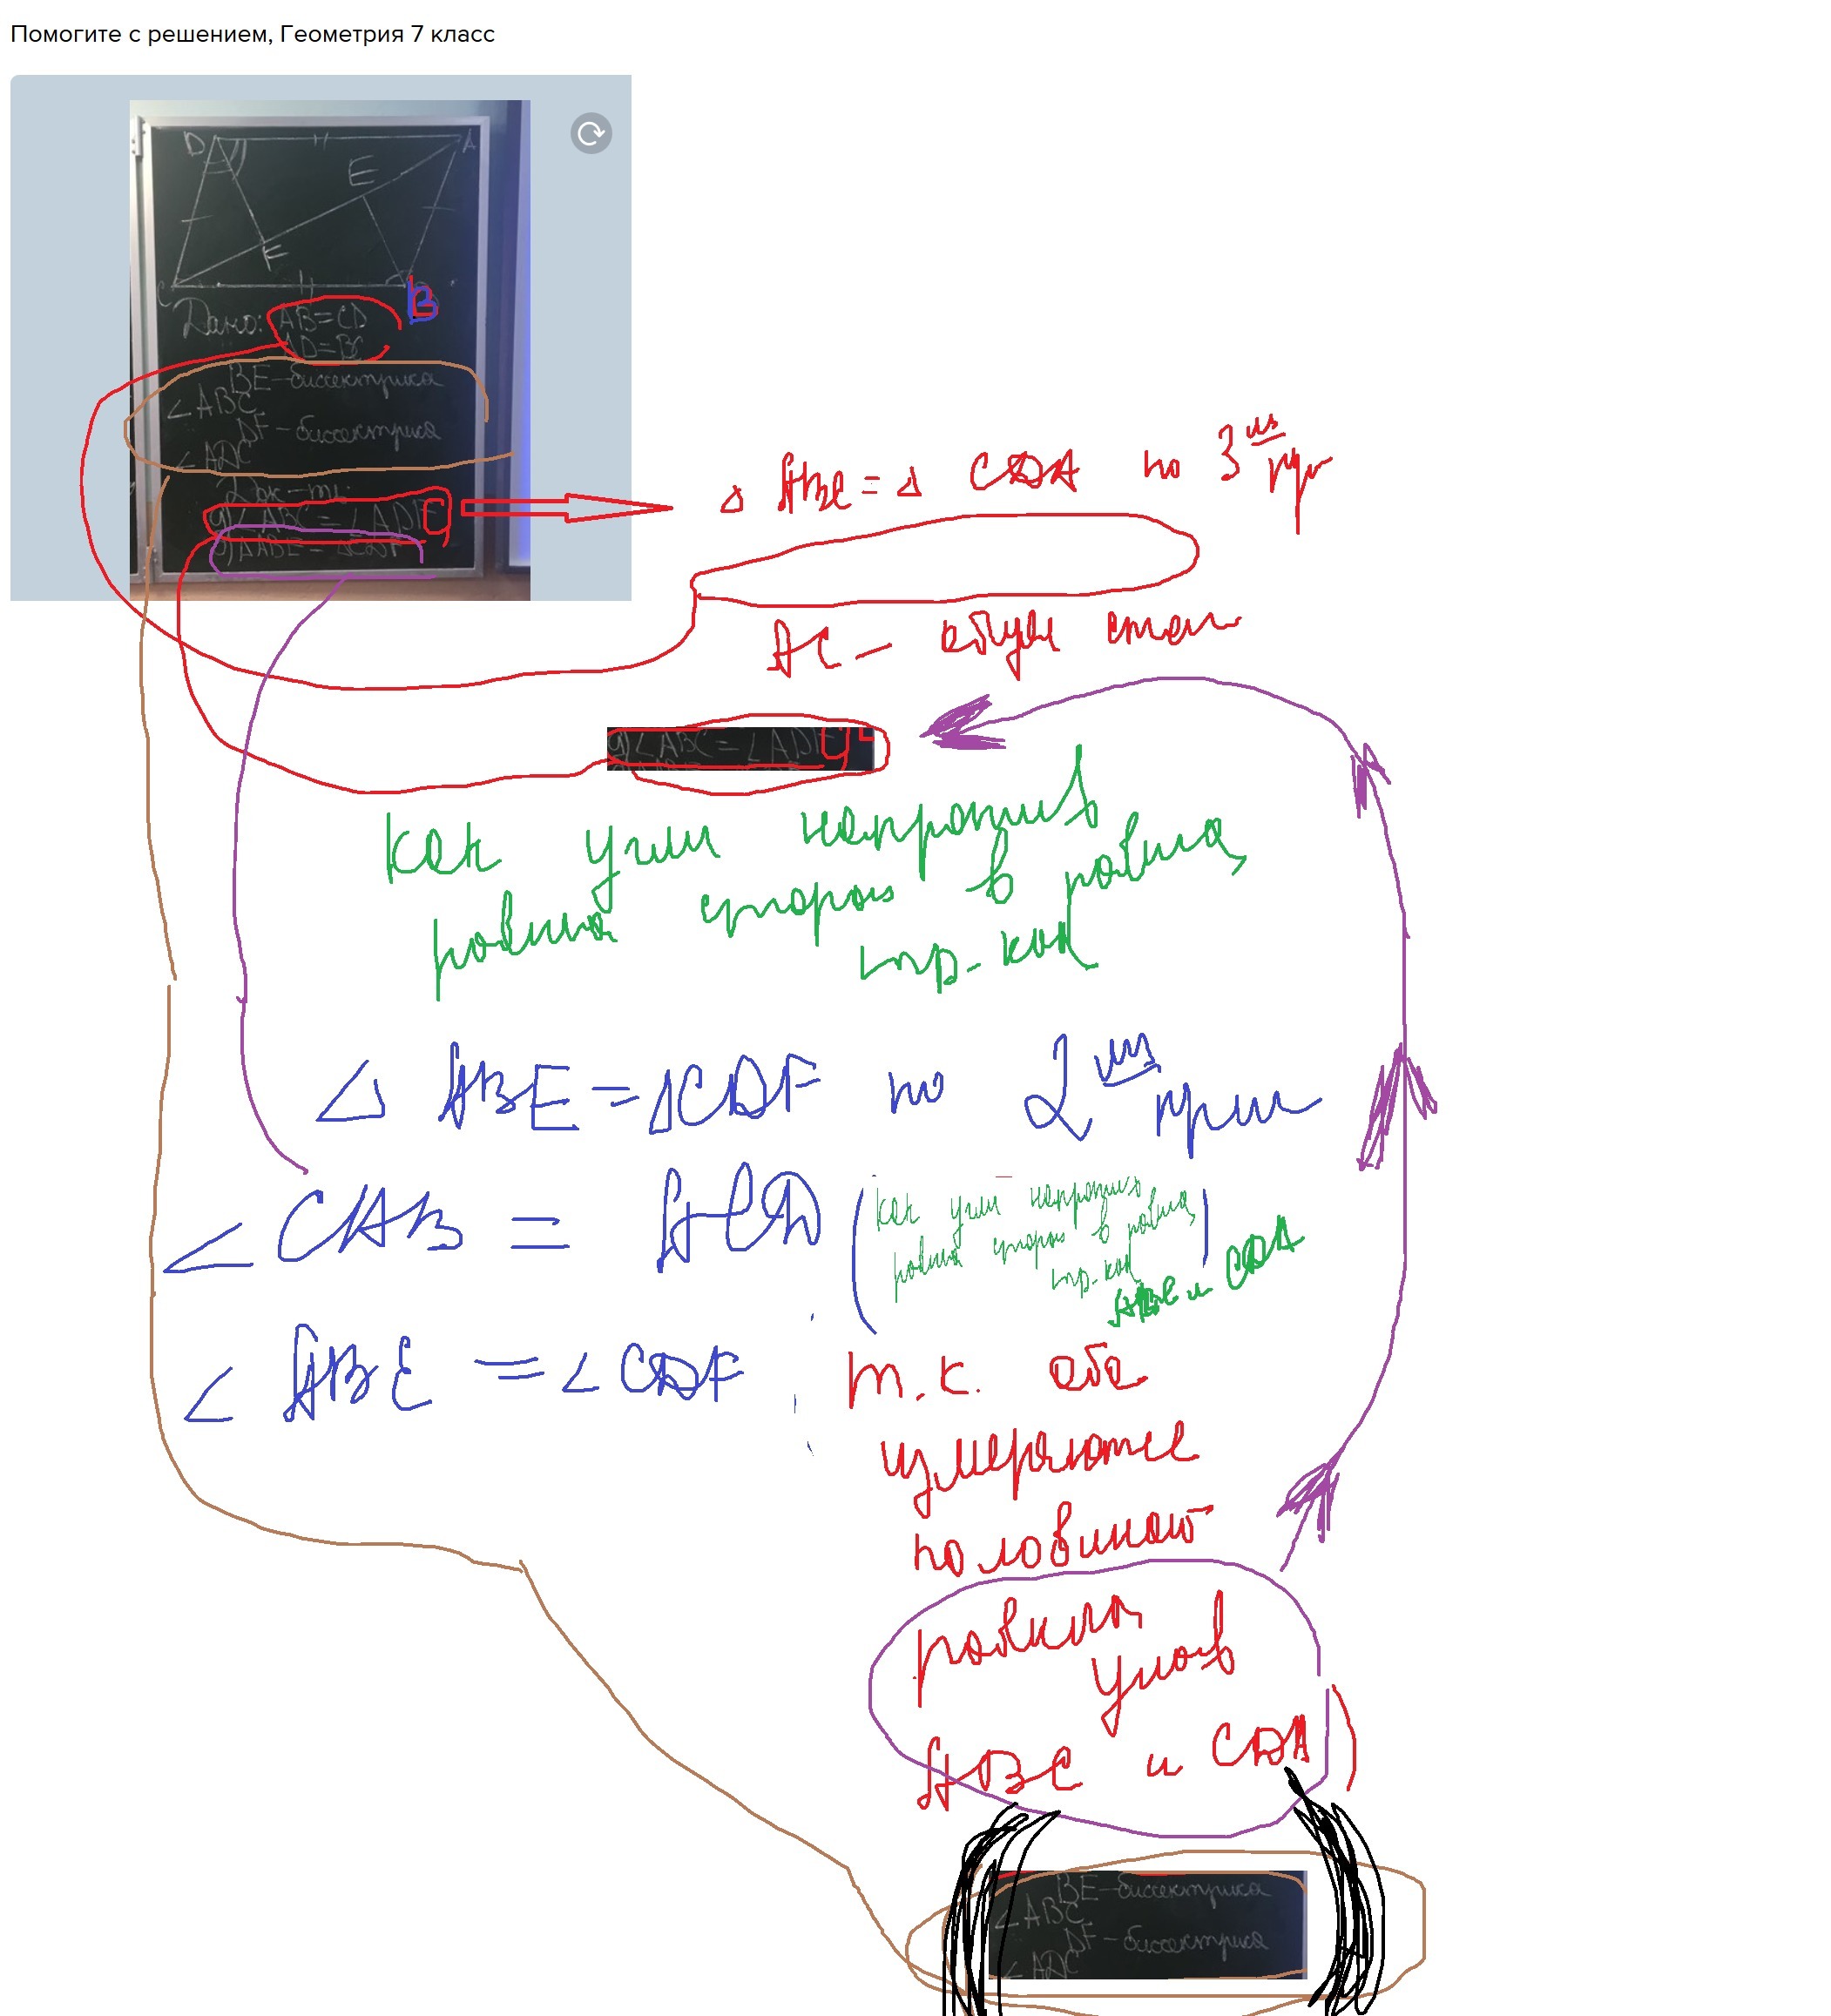 Помогите с решением, Геометрия 7 класс
D A
E
F
C B
Дано: AB=CD
AD=BC
BE-биссектриса
∠ABC
DF-биссектриса
∠ADC
Док-ть:
∠ABC=∠ADC
ΔABE=ΔCDF
Δ ABC = Δ CDA по 3
AC –
∠ABC=∠ADC
как углы напротив
равных сторон в равных
тр-ках
Δ ABE = ΔCDF по 2
∠ CAB = ACD
(как углы напротив
равных сторон в равных
тр-ках)
ABC и CDA
∠ ABE = ∠ CDF
т.к. оба
измеряются
половиной
равных
углов
ABC и CDA)
BE-биссектриса
∠ABC
DF-биссектриса
∠ADC